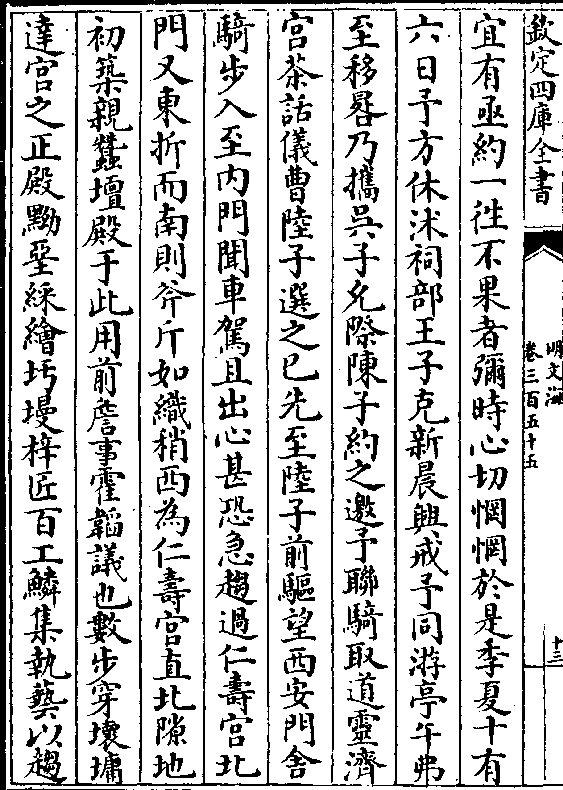 欽定四庫全書
明文海
卷三百五十五
十三
宜有亟約一徃不果者彌時心切惘惘於是季夏十有
六日予方休沐祠部王子克新晨興戒予同游亭午弗
至移晷乃攜吳子允際陳子約之邀予聯騎取道靈濟
宮茶話儀曹陸子選之已先至陸子前驅望西安門舍
騎步入至内門聞車駕且出心甚恐急趨過仁壽宮北
門又東折而南則斧斤如織稍西為仁壽宮直北隙地
初築親蠶壇殿于此用前詹事霍韜議也數步穿壞墉
達宮之正殿黝堊綵繪圬墁梓匠百工鱗集執藝以趨